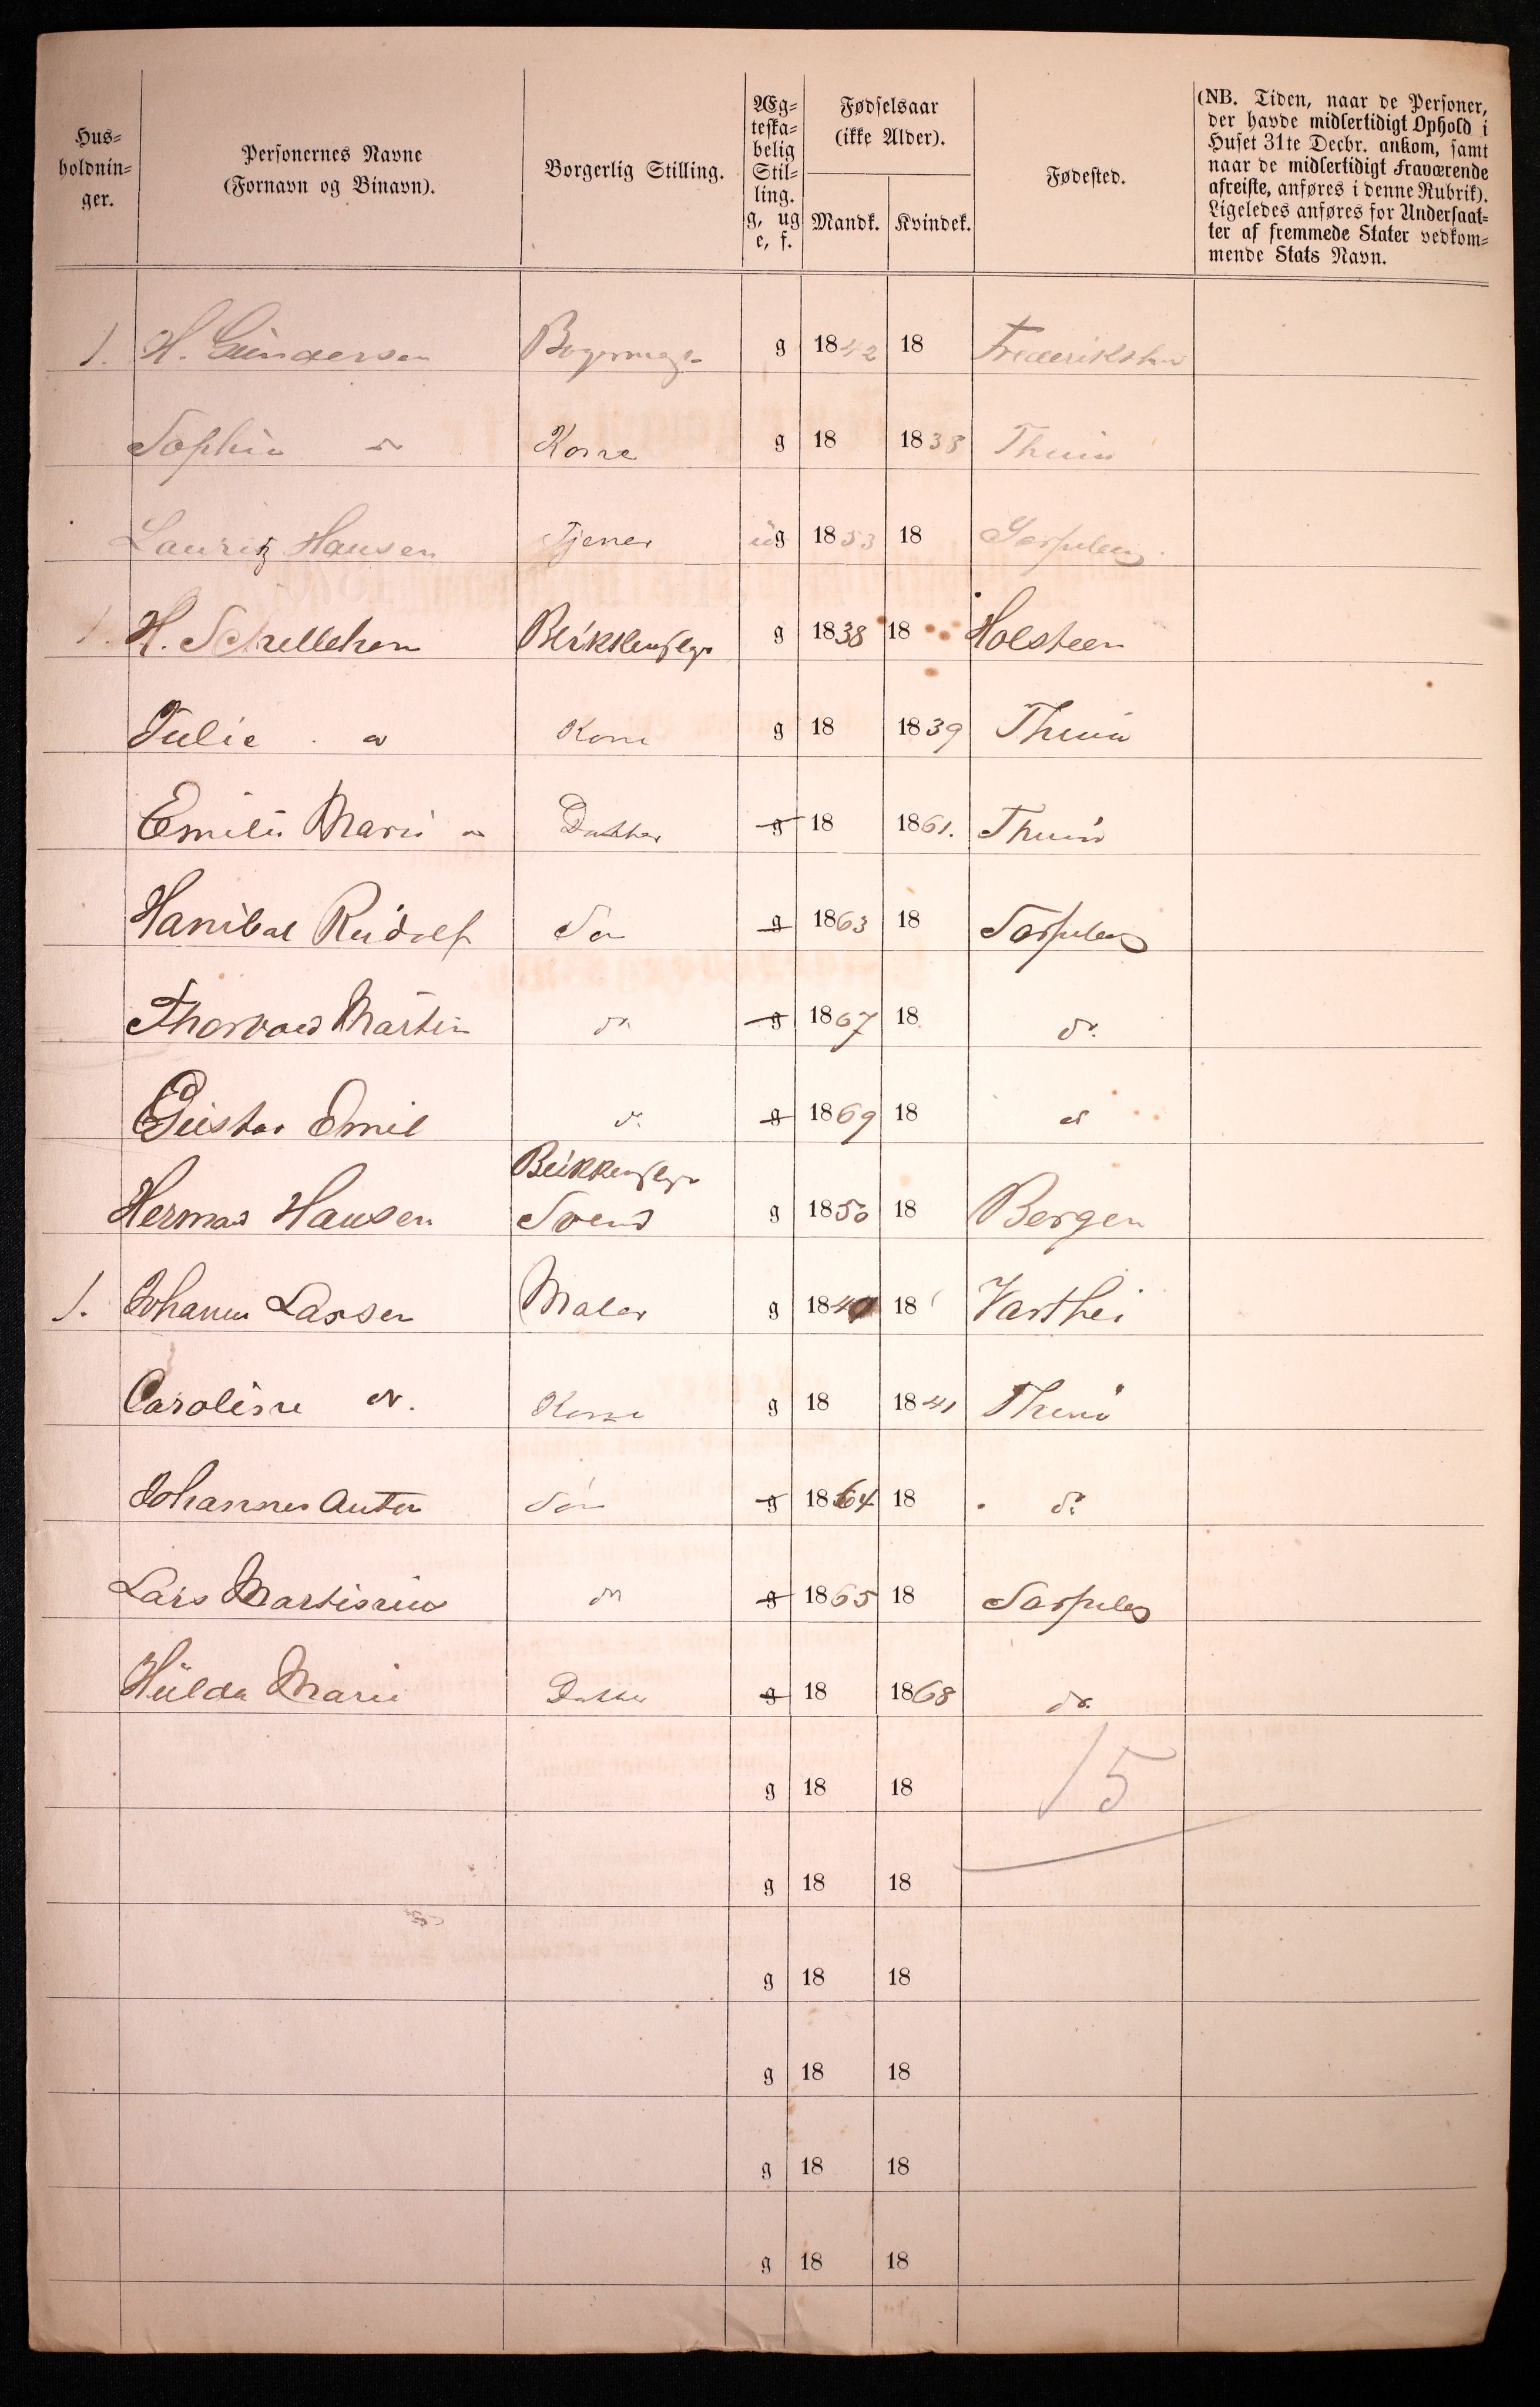 Hus-
holdnin-
ger.
Personernes Navne
(Fornavn og Binavn).
Borgerlig Stilling.
Æg-
teska-
belig
Stil-
ling.
g, ug
e, f.
Fødselsaar
(ikke Alder).
Mandk. Kvindek.
Fødested.
(NB. Tiden, naar de Personer,
der havde midlertidigt Ophold i
Huset 31te Decbr. ankom, samt
naar de midlertidigt Fraværende
afreiste, anføres i denne Rubrik).
Ligeledes anføres for Undersaat-
ter af fremmede Stater vedkom-
mende Stats Navn.
1. H. Gundersen g 1842 18
Sophia do Kone g 18 1838 Thunø
Lauritz Hansen Tjener ug 1853 18 Sarpsborg
1. H. g 1838 18 Holsteen
Julie do Kone g 18 1839 Thunø
Emilie Marie do Datter g 18 1861. Thunø
Hanibal Rudolf Søn g 1863 18
Thorvald Martin do g 1867 18 do.
Gustav Emil do g 1869 18 do
Herman Hansen Svend g 1850 18 Bergen
1. Johannes Larsen Maler g 184 18
Caroline do. Kone g 18 1841 Thunø
Johannes Anton Søn g 1864 18 do
Lars Martinius do g 1865 18
Hulda Marie Datter g 18 1868 do.
g 18 18 15
g 18 18
g 18 18
g 18 18
g 18 18
g 18 18